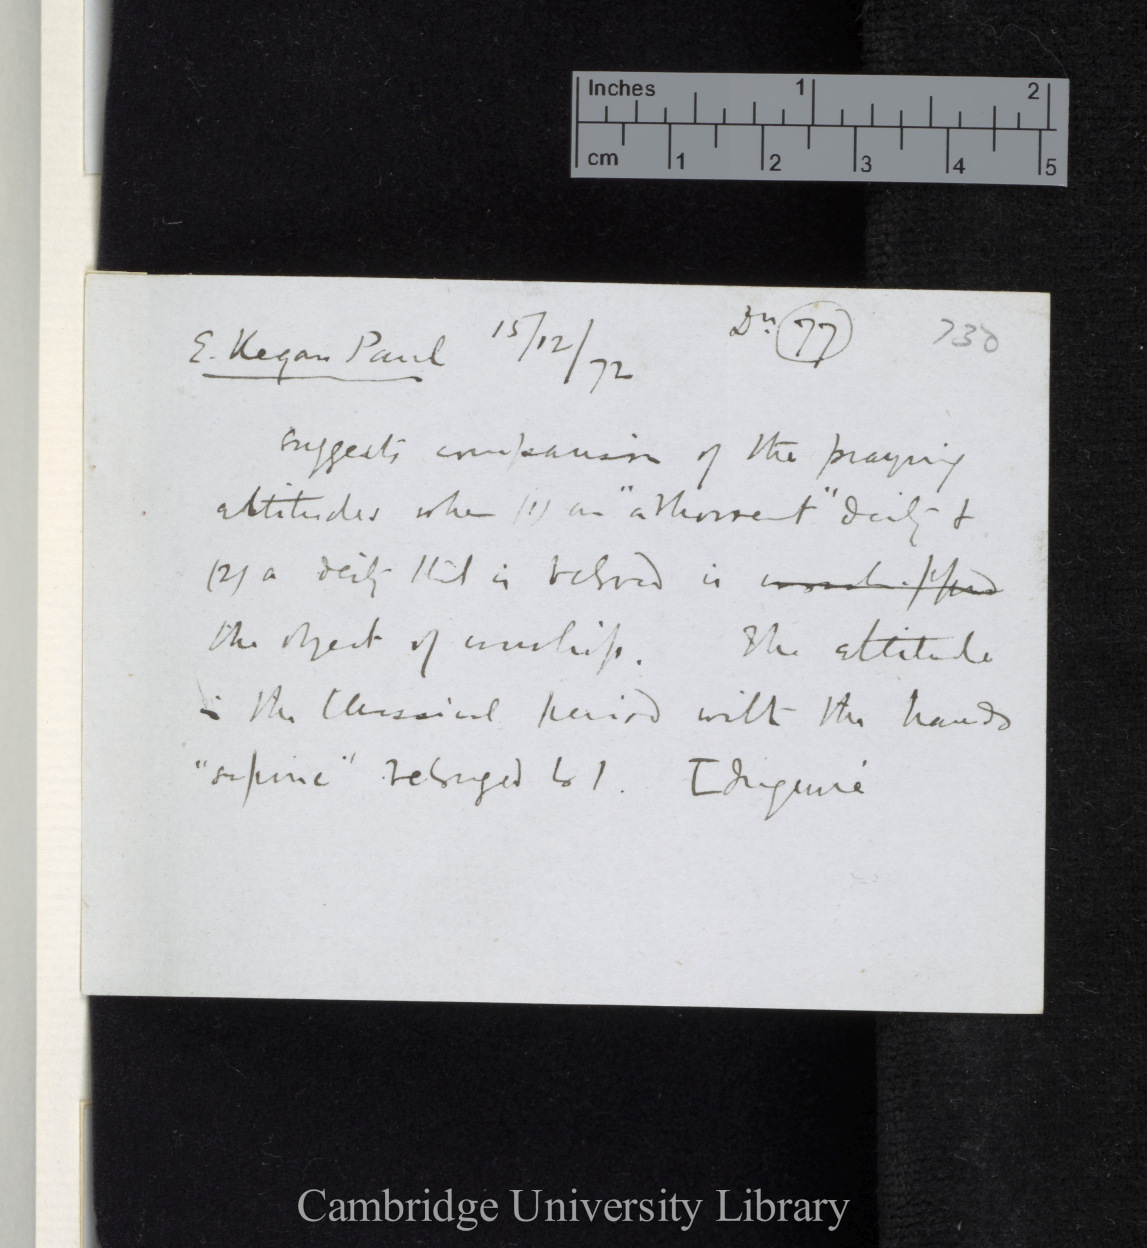 Inches 1 2
cm 1 2 3 4 5
E. Kegan Paul 15/12/72 Dn 77 730
suggests comparison of the praying
attitudes when (1) an "abhorrent" deity &
(2) a deity that is beloved is worshipped
the object of worship. The attitude
in the Classical period with the hands
"supine" belonged to 1.
Cambridge University Library